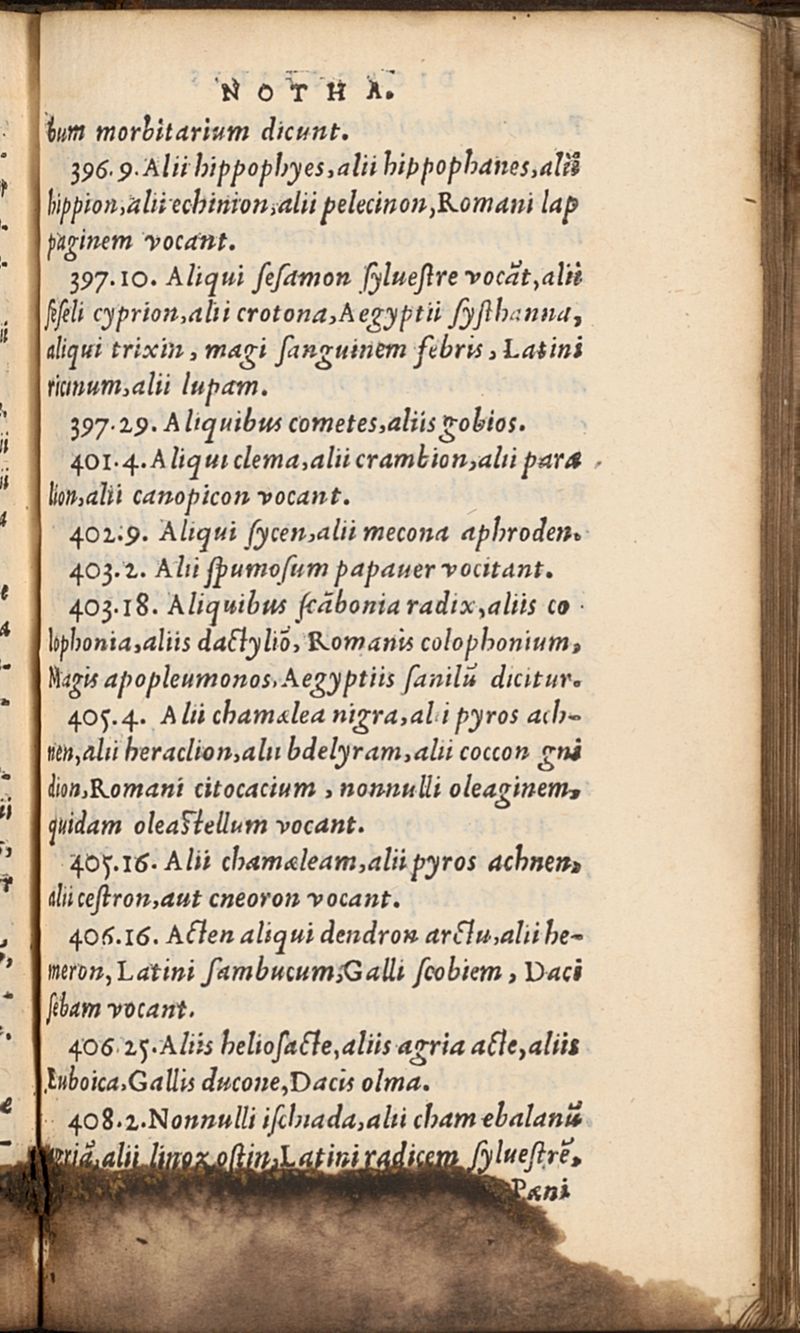 NOTHA.
bum morbitarium dicunt.
396.9. Alii hippophyes, alii hippophanes, alii
hippion, alii echinion, alii pelecinon, Romani lap
paginem vocant.
397.10. Aliqui ſeſamon ſylueſtre vocāt, alii
ſeſeli cyprion, alii crotona, Aegyptii ſyſthanna,
aliqui trixin, magi ſanguinem febris, Latini
ricinum, alii lupam.
397.29. Aliquibus cometes, aliis gobios.
401.4. Aliqui clema, alii crambion, alii para
lion, alii canopicon vocant.
402.9. Aliqui ſycen, alii mecona aphroden.
403.2. Alii ſpumoſum papauer vocitant.
403.18. Aliquibus ſcābonia radix, aliis co
lophonia, aliis dactyliō, Romanis colophonium,
Magis apopleumonos, Aegyptiis ſanilū dicitur.
405.4. Alii chamælea nigra, alii pyros ach-
nen, alii heraclion, alii bdelyram, alii coccon gni
dion, Romani citocacium, nonnulli oleaginem,
quidam oleaſtellum vocant.
405.16. Alii chamæleam, alii pyros achnen,
alii ceſtron, aut cneoron vocant.
406.16. Acten aliqui dendron arctu, alii he-
meron, Latini ſambucum, Galli ſcobiem, Daci
ſebam vocant.
406.25. Aliis helioſacte, aliis agria acte, aliis
Euboica, Gallis ducone, Dacis olma.
408.2. Nonnulli iſchiada, alii chamæbalanū
agriā, alii linozoſtin, Latini radicem ſylueſtrē,
Pæni